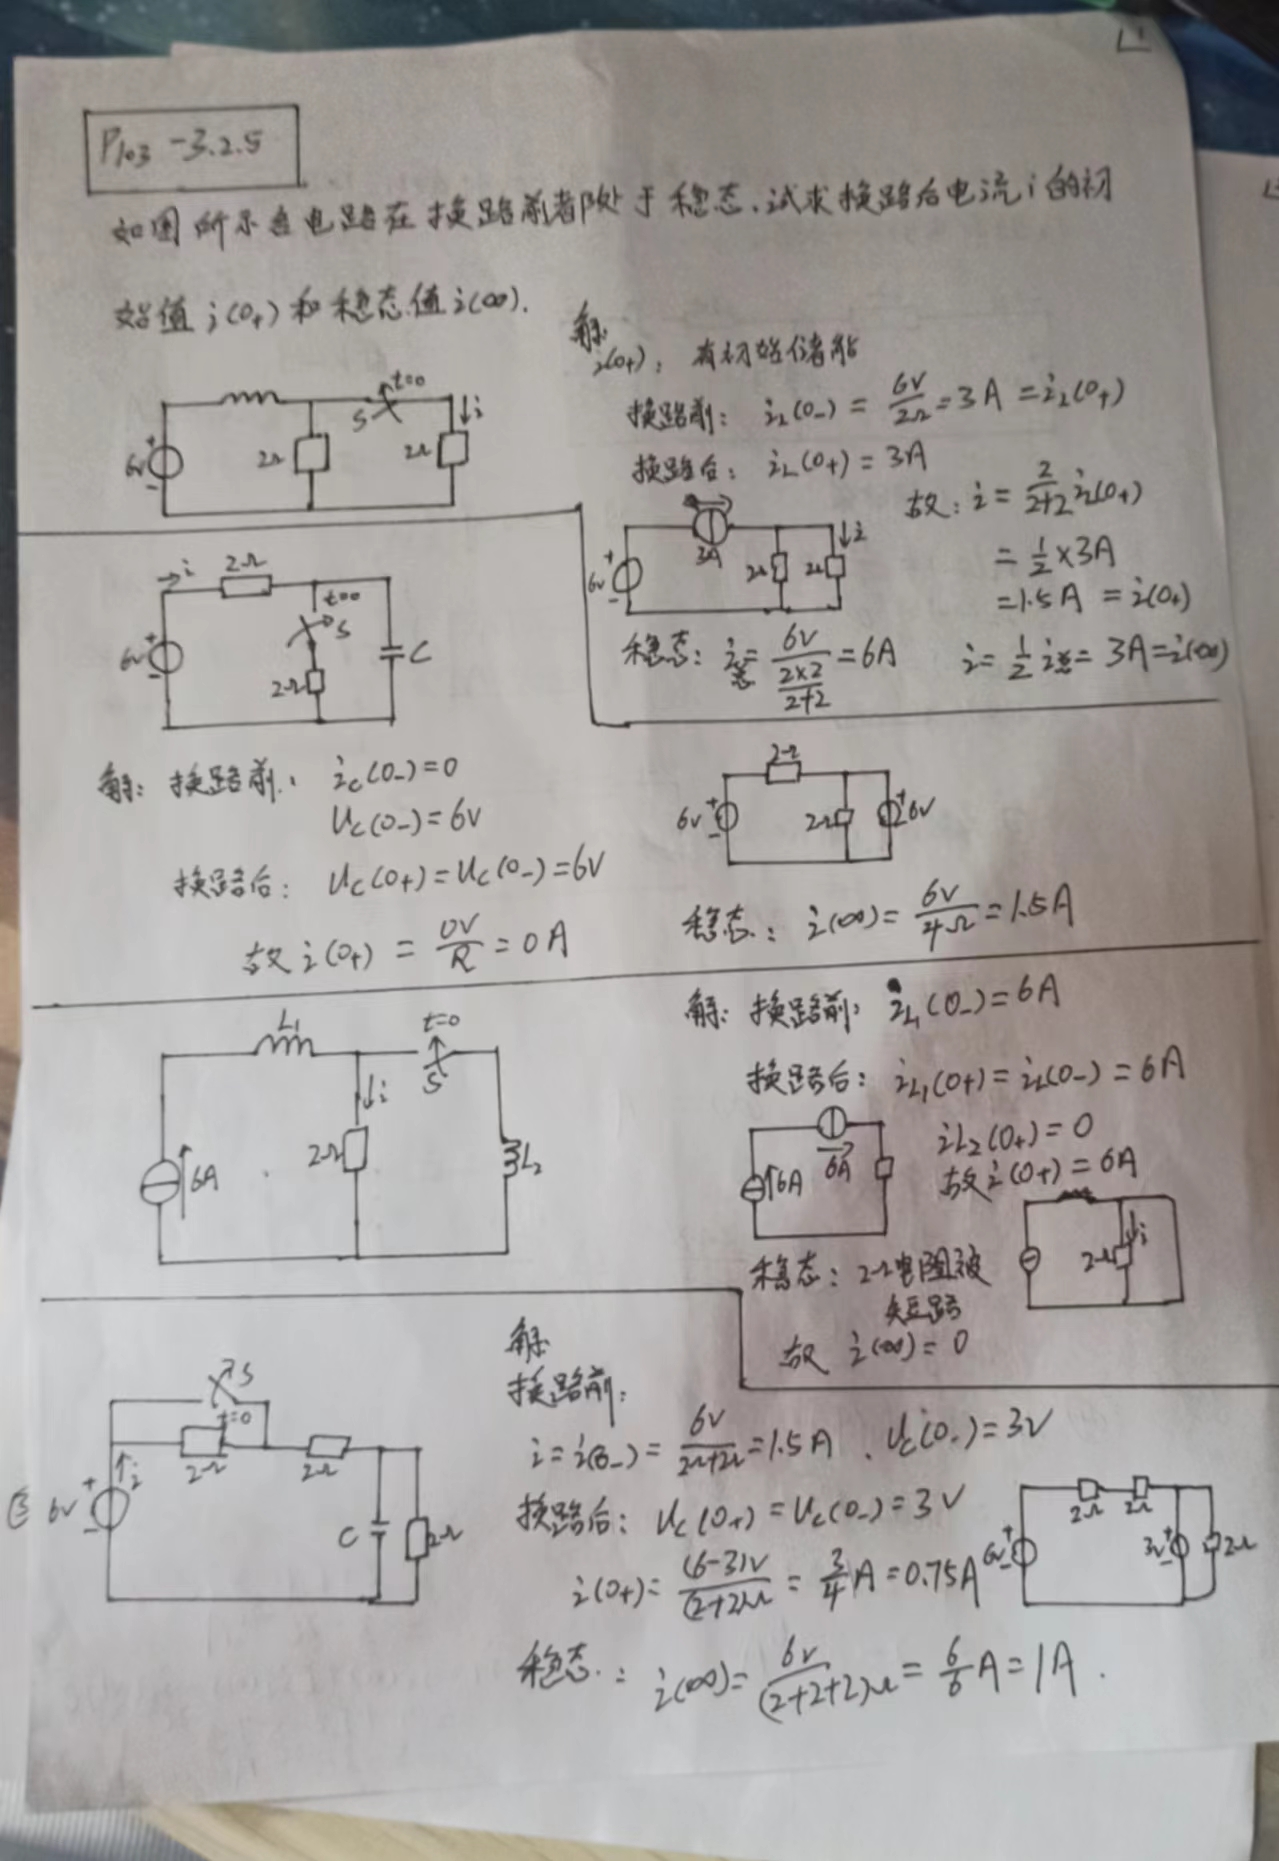 P103 -3.2.5
如图所示各电路在换路前都处于稳态.试求换路后电流i的初
始值i(0+)和稳态值i(∞).
t=0
S
i
6V
+
-
2Ω
2Ω
解:
i(0+): 有初始储能
换路前: iL(0-) = 6V/2Ω = 3A = iL(0+)
换路后: iL(0+) = 3A
故: i = 2/(2+2) iL(0+)
= 1/2 × 3A
= 1.5A = i(0+)
3A
6V
+
-
2Ω
2Ω
i
稳态: i总 = 6V/(2×2/(2+2)) = 6A
i = 1/2 i总 = 3A = i(∞)
i
2Ω
t=0
S
6V
+
-
2Ω
C
解: 换路前: iC(0-) = 0
UC(0-) = 6V
换路后: UC(0+) = UC(0-) = 6V
故 i(0+) = 0V/R = 0A
2Ω
6V
+
-
2Ω
+
-
6V
稳态: i(∞) = 6V/4Ω = 1.5A
L1
t=0
S
i
2Ω
6A
L2
解: 换路前: iL1(0-) = 6A
换路后: iL1(0+) = iL(0-) = 6A
iL2(0+) = 0
故 i(0+) = 6A
6A
6A
稳态: 2Ω电阻被
短路
故 i(∞) = 0
2Ω
i
S
t=0
i
2Ω
2Ω
6V
+
-
C
2Ω
解:
换路前:
i = i(0-) = 6V/(2Ω+2Ω) = 1.5A . UC(0-) = 3V
换路后: UC(0+) = UC(0-) = 3V
i(0+) = (6-3)V/(2+2)Ω = 3/4 A = 0.75A
2Ω
2Ω
6V
+
-
3V
+
-
2Ω
稳态: i(∞) = 6V/(2+2+2)Ω = 6/6 A = 1A .